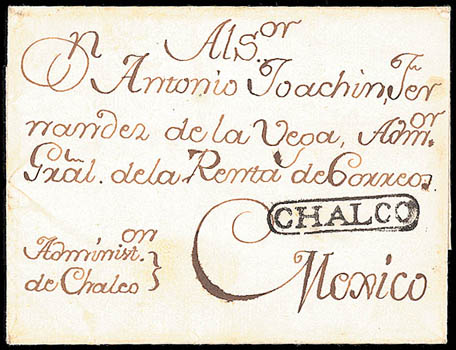 Al S.or
Dn Antonio Joachin Fer
nandez de la Vega, Adm.or
Gral. de la Renta de Correos
CHALCO
Mexico
Administ.on
de Chalco